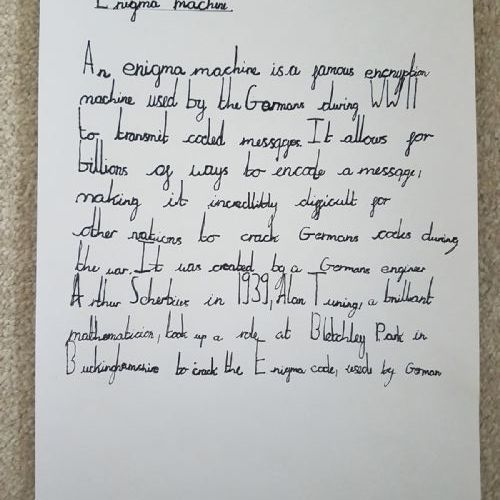 Enigma machine.
An enigma machine is a famous encryption
machine used by the Germans during WWII
to transmit coded messages. It allows for
billions of ways to encode a message,
making it incredibly difficult for
other nations to crack Germans codes during
the war. It was created by a Germans engineer
Arthur Scherbius in 1939, Alan Turing, a brilliant
mathematician, took up a role at Bletchley Park in
Buckinghamshire to crack the Enigma code, used by German